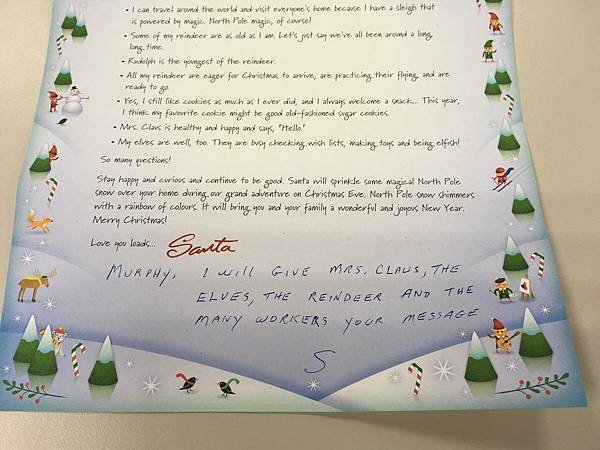 • I can travel around the world and visit everyone's home because I have a sleigh that
is powered by magic. North Pole magic, of course!
• Some of my reindeer are as old as I am. Let's just say we've all been around a long,
long time.
• Rudolph is the youngest of the reindeer.
• All my reindeer are eager for Christmas to arrive, are practicing their flying, and are
ready to go.
• Yes, I still like cookies as much as I ever did, and I always welcome a snack... This year,
I think my favourite cookie might be good old-fashioned sugar cookies.
• Mrs. Claus is healthy and happy and says, "Hello."
• My elves are well, too. They are busy checking wish lists, making toys and being elfish!
So many questions!
Stay happy and curious and continue to be good. Santa will sprinkle some magical North Pole
snow over your home during our grand adventure on Christmas Eve. North Pole snow shimmers
with a rainbow of colours. It will bring you and your family a wonderful and joyous New Year.
Merry Christmas!
Love you loads... Santa
MURPHY, I WILL GIVE MRS. CLAUS, THE
ELVES, THE REINDEER AND THE
MANY WORKERS YOUR MESSAGE
S